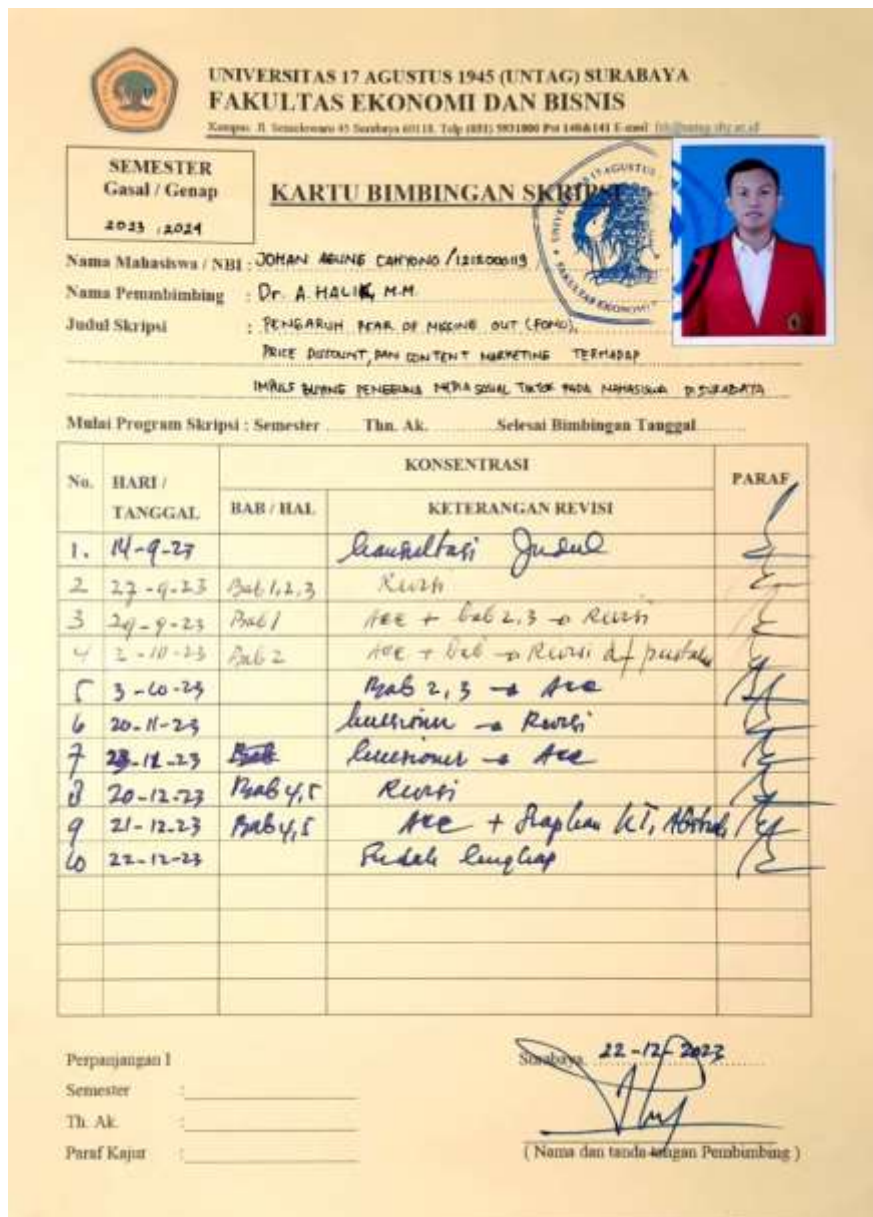 UNIVERSITAS 17 AGUSTUS 1945 (UNTAG) SURABAYA
FAKULTAS EKONOMI DAN BISNIS
Kampus Jl. Semolowaru 45 Surabaya 60118, Telp (031) 5931800 Pst 140&141 E-mail
SEMESTER
Gasal / Genap
2023 / 2024
KARTU BIMBINGAN SKRIPSI
UNIVERSITAS 17 AGUSTUS
FAKULTAS EKONOMI
Nama Mahasiswa / NBI : JOHAN AGUNG CAHYONO /
Nama Pemmbimbing : Dr. A. HALIK, M.M.
Judul Skripsi : PENGARUH FEAR OF MISSING OUT (FOMO),
PRICE DISCOUNT, DAN CONTENT MARKETING TERHADAP
IMPULS BUYING PENGGUNA MEDIA SOSIAL TIKTOK PADA MAHASISWA DI SURABAYA
Mulai Program Skripsi : Semester Thn. Ak. Selesai Bimbingan Tanggal
No. HARI / TANGGAL KONSENTRASI PARAF
BAB / HAL KETERANGAN REVISI
1. 14-9-23 Konsultasi Judul
2 27-9-23 Bab 1,2,3 Revisi
3 29-9-23 Bab 1 Acc + bab 2,3 → Revisi
4 2-10-23 Bab 2 Acc + bab → Revisi df pustaka
5 3-10-23 Bab 2,3 → Acc
6 20-11-23 kuesioner → Revisi
7 kuesioner → Acc
8 20-12-23 Bab 4,5 Revisi
9 21-12-23 Bab 4,5 Acc + Siapkan KT, Abstrak
10 22-12-23 Sudah lengkap
Perpanjangan I
Semester :
Th. Ak. :
Paraf Kajur :
Surabaya, 22-12-2023
( Nama dan tanda tangan Pembimbing )